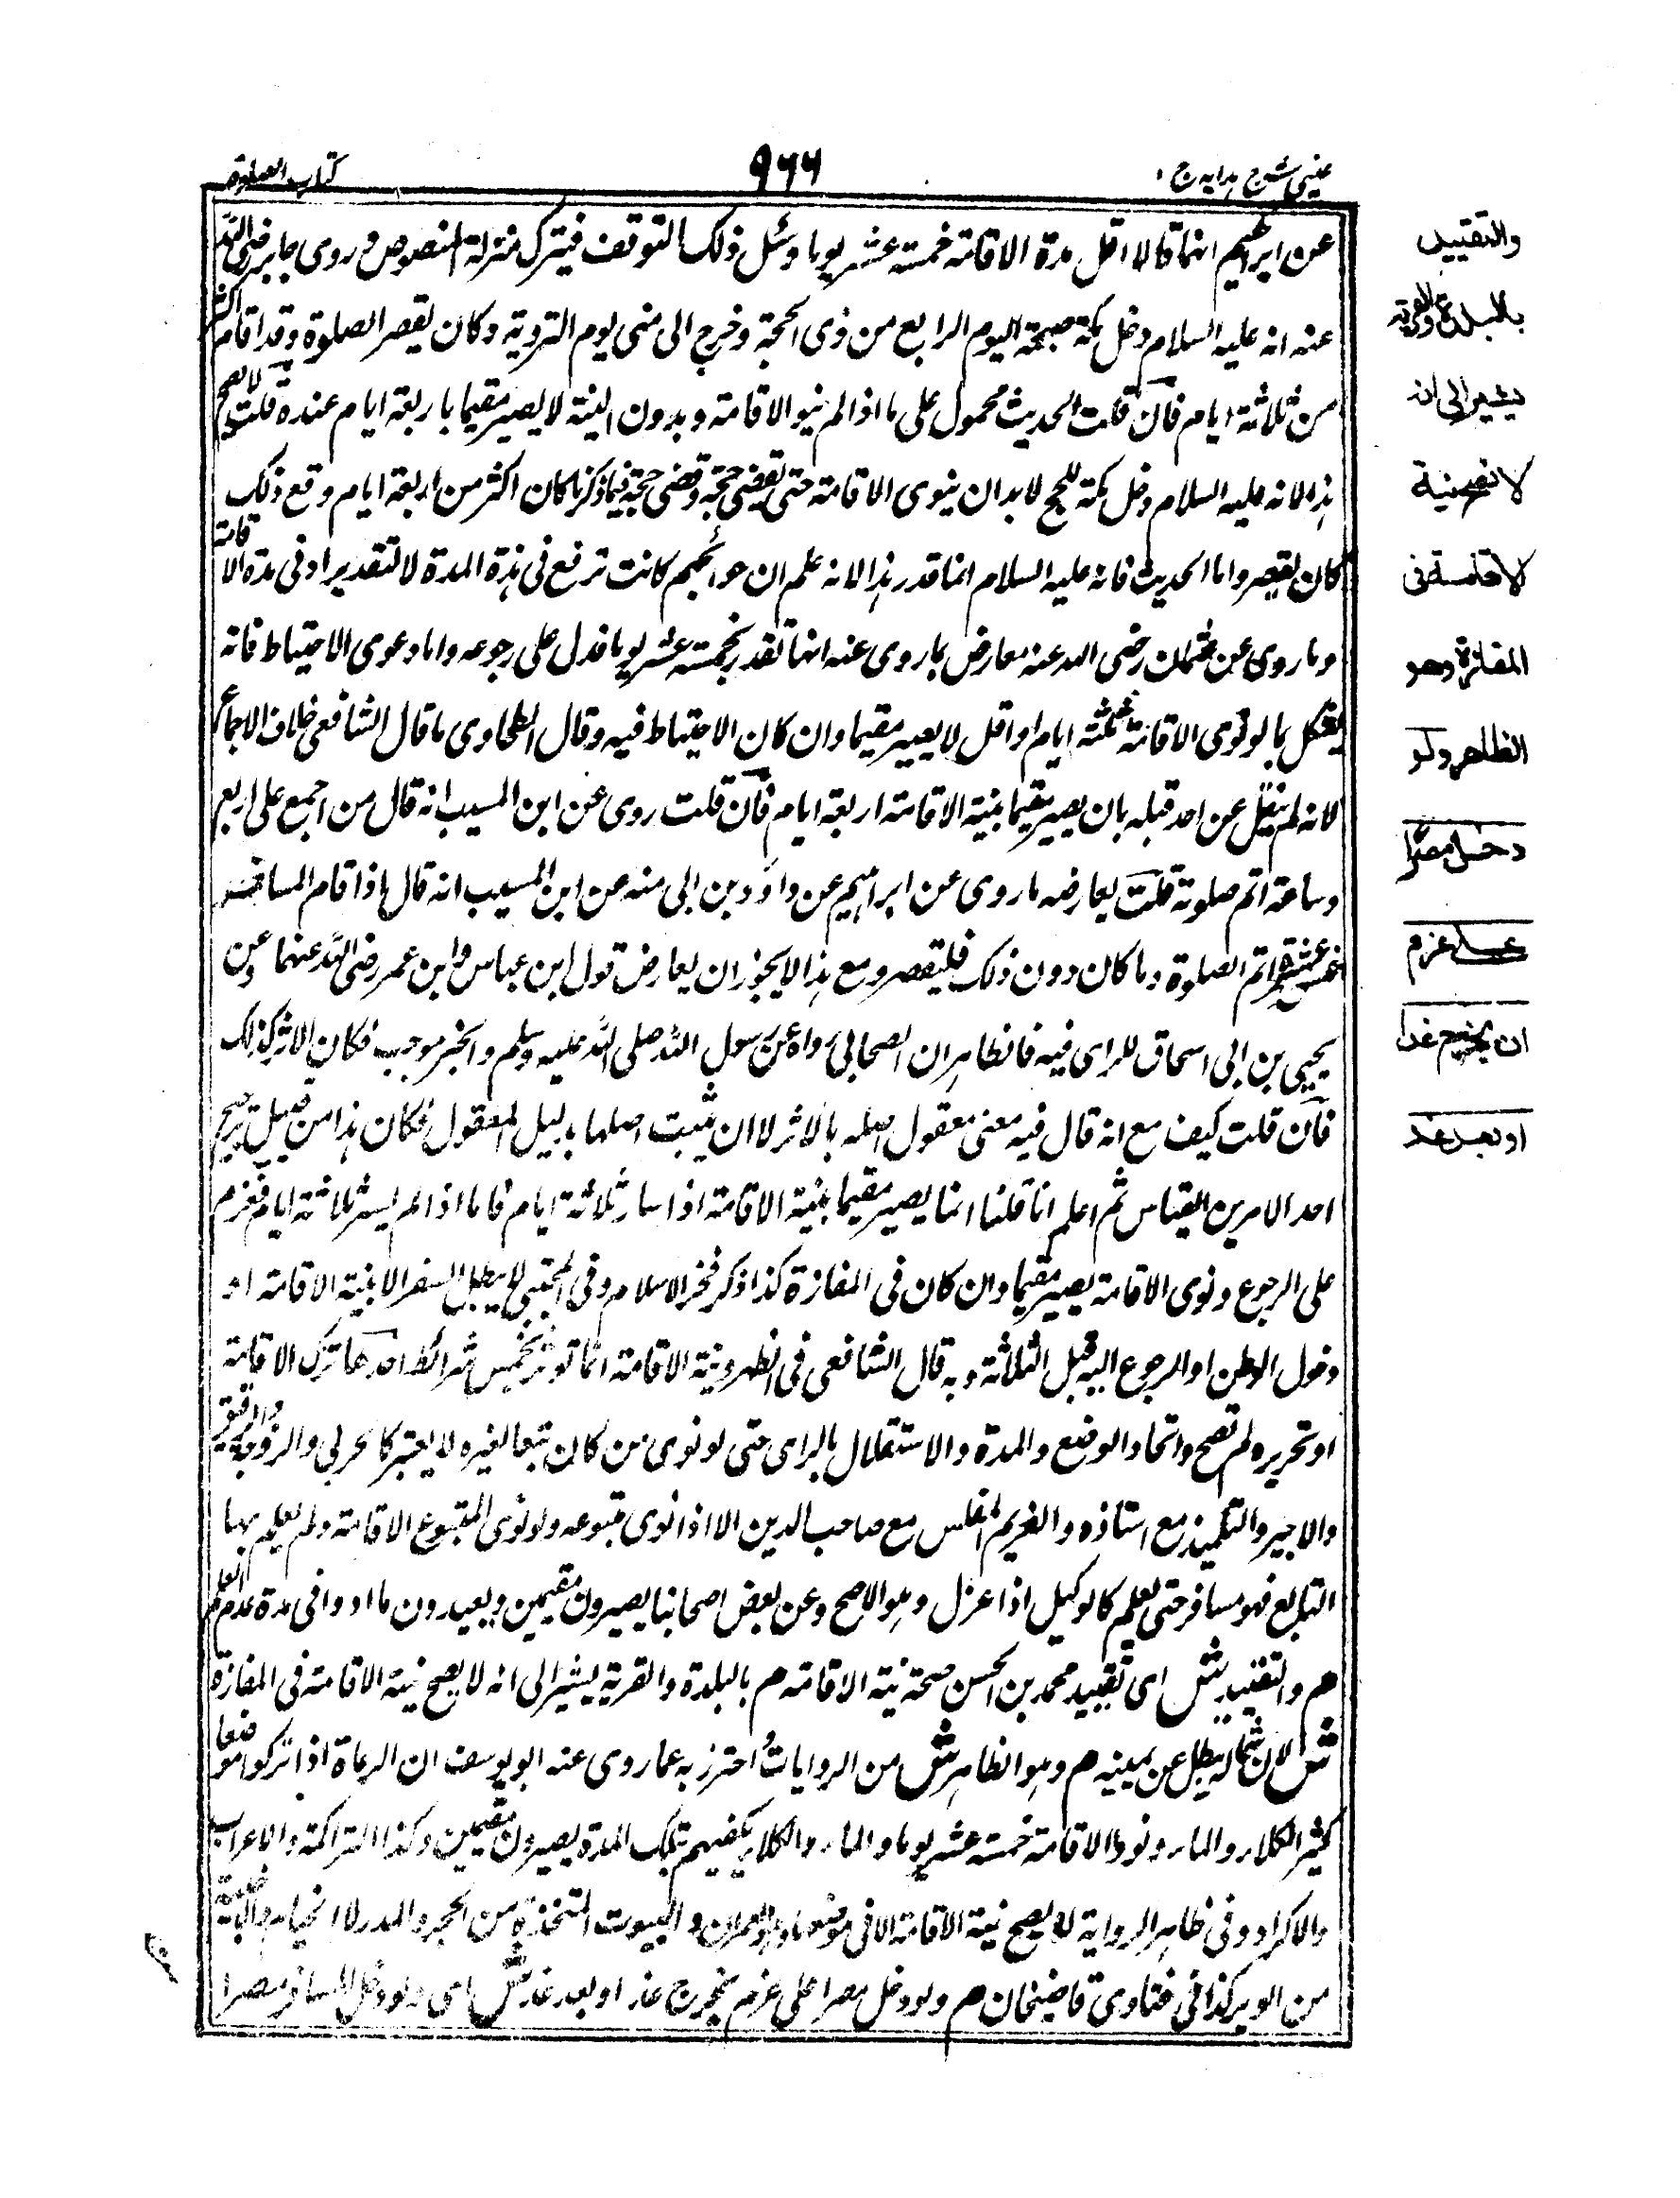 عینی شرح ہدایہ ج ۱
۹۶۶
کتاب الصلوة
عن ابراهيم انهما قالا اقل مدة الاقامة خمسة عشر يوما ومثل ذلك التوقف فيترك منزلة المنصوص وروى جابر رضى الله
عنه انه عليه السلام دخل مكة صبيحة اليوم الرابع من ذى الحجة وخرج الى منى يوم التروية وكان يقصر الصلوة وقد اقام اكثر
من ثلاثة ايام فان قلت الحديث محمول على ما اذا لم ينو الاقامة وبدون النية لا يصير مقيما باربعة ايام عنده قلت لا يصح
هذا لانه عليه السلام دخل مكة للحج لا بد ان ينوى الاقامة حتى يقضى حجة وقضى حجة فيما ذكرنا كان اكثر من اربعة ايام وقع ذلك
كان يقصر واما الحديث فانه عليه السلام انما قدر هذا لانه علم ان حوائجهم كانت ترفع فى هذه المدة لا لتقدير ادنى مدة الاقامة
وما روى عن عثمان رضى الله عنه معارض بما روى عنه انها تقدر بخمسة عشر يوما فدل على رجوعه واما دعوى الاحتياط فانه
يشكل بما لو نوى الاقامة ثلثة ايام او اقل لا يصير مقيما وان كان الاحتياط فيه وقال الطحاوى ما قال الشافعى خلاف الاجماع
لانه لم ينقل عن احد قبله بان يصير مقيما بنية الاقامة اربعة ايام فان قلت روى عن ابن المسيب انه قال من اجمع على اربع
وساعة اتم صلوته قلت يعارضه ما روى عن ابراهيم عن داؤد بن ابى منه عن ابن المسيب انه قال اذا قام المسافر
خمس عشرة اتم الصلوة وما كان دون ذلك فليقصر ومع هذا لا يجوز ان يعارض قول ابن عباس وابن عمر رضى الله عنهما وعن
يحيى بن ابى اسحاق للراى فيه فالظاهر ان الصحابى رواه عن رسول الله صلى الله عليه وسلم والخبر موجب فكان الاثر كذلك
فان قلت كيف مع انه قال فيه معنى معقول اصله بالاثر لا ان يثبت اصلها بدليل المعقول فكان هذا من قبيل ترجيح
احد الامرين القياس ثم اعلم انا قلنا انما يصير مقيما بنية الاقامة اذا سار ثلاثة ايام فاما اذا لم يسر ثلاثة ايام فعزم
على الرجوع ونوى الاقامة يصير مقيما وان كان فى المفازة كذا ذكر فخر الاسلام وفى المجتبى لا يبطل السفر الا بنية الاقامة او
دخول الوطن او الرجوع اليه قبل الثلاثة وبه قال الشافعى فى اظهر ونية الاقامة انما تؤثر بخمس شرائط احدها ترك الاقامة
او تحريره لم تصح واتحاد الموضع والمدة والاستقلال بالراى حتى لو نوى من كان تبعا لغيره لا يعتبر كالحربى والزوجة والرقيق
والاجير والتلميذ مع استاذه والغريم المفلس مع صاحب الدين الا اذا نوى متبوعه ولو نوى المتبوع الاقامة ولم يعلم بها
التابع فهو مسافر حتى يعلم كالوكيل اذا عزل وهو الاصح وعن بعض اصحابنا يصيرون مقيمين ويعيدون ما ادوا فى مدة عدم العلم
هم والتقييد ش اى تقييد محمد بن الحسن صحة نية الاقامة هم بالبلدة والقرية يشير الى انه لا يصح نية الاقامة فى المفازة
ش لان شماله يبطل عن يمينه هم وهو الظاهر ش من الروايات احترز به عما روى عنه ابو يوسف ان الرعاة اذا تركوا موضعا
كثير الكلاء والماء ونووا الاقامة خمسة عشر يوما والماء والكلاء يكفيهم تلك المدة يصيرون مقيمين وكذا التراكمة والاعراب
والاكراد وفى ظاهر الرواية لا يصح نية الاقامة الا فى موضعها والعمران والبيوت المتخذة من الحجر والمدر لا الخيام والاخبية
من الوبر كذا فى فتاوى قاضيخان هم ولو دخل مصرا على عزم يخرج غدا او بعد غد ش اى ولو دخل المسافر مصرا
والتقييد
بالبلدة والقرية
يشير الى انه
لا تصح نية
الاقامة فى
المفازة وهو
الظاهر ولو
دخل مصرًا
على عزم
ان يخرج غدا
او بعد غد